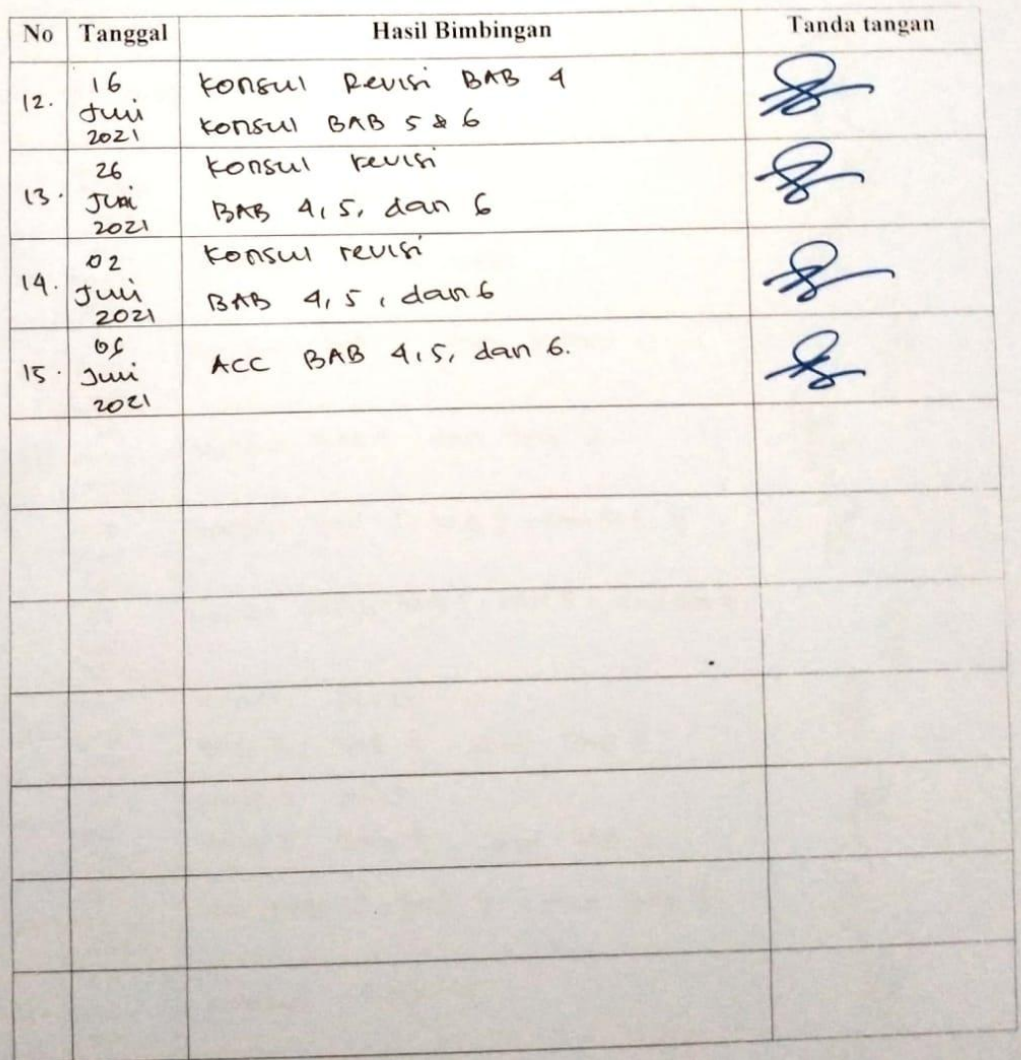 No Tanggal Hasil Bimbingan Tanda tangan
12. 16 Juni 2021
Konsul Revisi BAB 4
Konsul BAB 5 & 6
13. 26 Juni 2021
Konsul revisi
BAB 4, 5, dan 6
14. 02 Juni 2021
Konsul revisi
BAB 4, 5, dan 6
15. Juni 2021
ACC BAB 4, 5, dan 6.